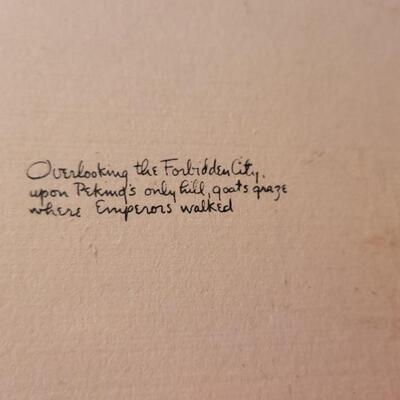 Overlooking the Forbidden City,
upon Peking's only hill, goats graze
where Emperors walked